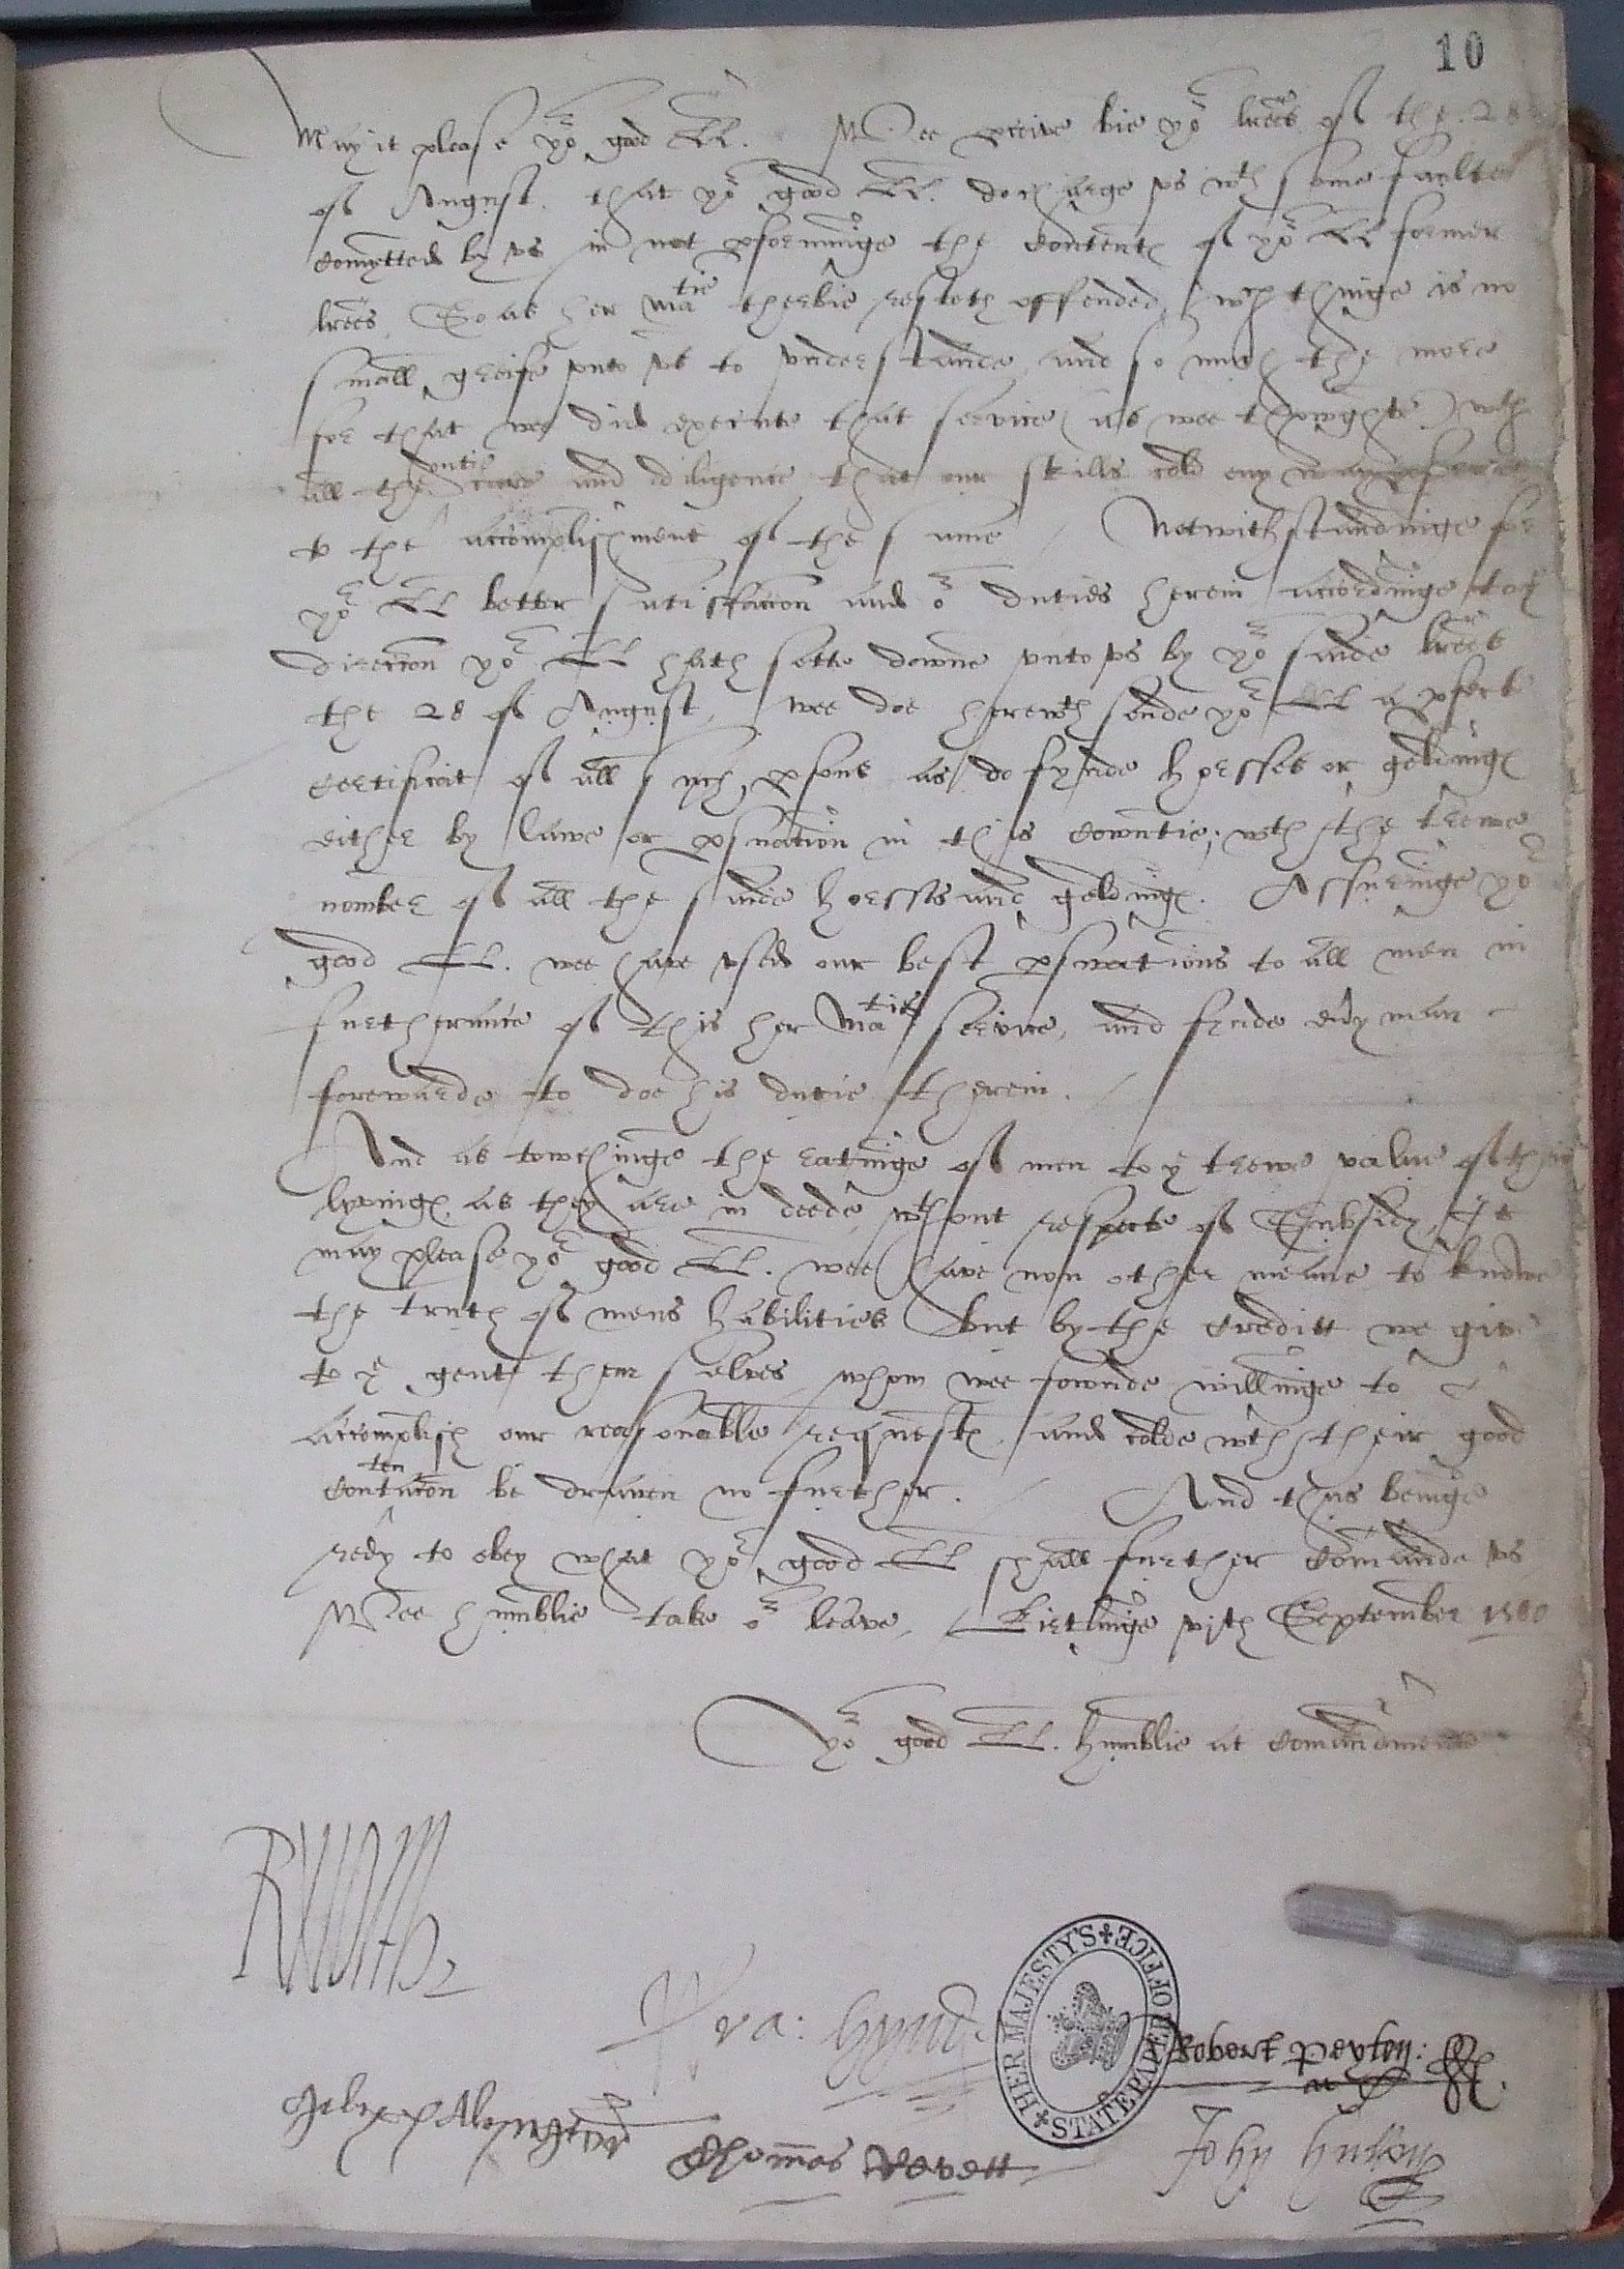 10
May it please yor good LL. Wee pceive bie yor lres of the. 28
of August. that yor good LL. do charge vs wth some faultes
comytted by vs in not pforminge the contents of yor LL former
lres So as her Matie therbie resteth offended, wch thinge is no
small greife vnto vs to vnderstande, and so much the more
for that wee did execute that service (as wee thowghte) wth
all the dutie care and diligence that our skills cold eny way
to the accomplishment of the same / Notwithstandinge for
yor LL better satisfaccon and or duties herein accordinge to ye
direccon yor LL hath sette downe vnto vs by yor saide lres
the 28 of August, wee doe herewth sende yor LL a pfect
certificat of all such psons as do fynde horsses or geldings
either by lawe or pswation in this cowntie, wth the trewe
nomber of all the saide horsses and geldings. Assuringe yor
good LL. wee have vsed our best pswations to all men in
furtherance of this her Maties service, and finde eu'y man
forewarde to doe his dutie therein. /
And as towchinge the ratinge of men to ye trewe value of their
lyvings, as they are in deede, wthout respecte of Subsidy, It
may please yor good LL. wee have non other meane to knowe
the truth of mens habilities but by the creditt we give
to ye gents them selves, whom wee fownde willinge to
accomplish our reasonable requests, and colde wth their good
contentacon be drawen no further. / And thus beinge
redy to obey what yor good LL shall further comande vs
Wee humblie take or leave, / Kirtlinge vjth September 1580
Yor good LL. humblie at comandmente
R North
Fra: Hynde
Robert Peyton:
Gyles Alyngton
Thomas Revett
John Hutton
HER MAJESTY'S STATE PAPER OFFICE